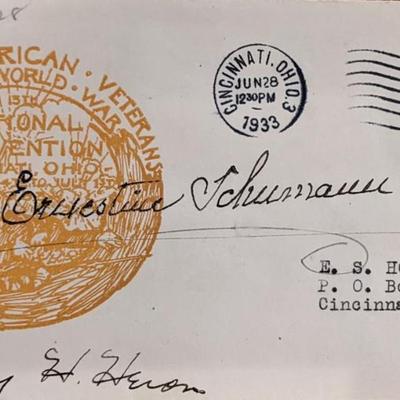 28
RICAN · VETERANS
WORLD · WAR
13TH
IONAL
VENTION
ATI, OHIO
TO JULY 1ST
CINCINNATI, OHIO. 3
JUN 28
1230PM
1933
Ernestine Schumann
E. S. H
P. O. Bo
Cincinna
H. Heron